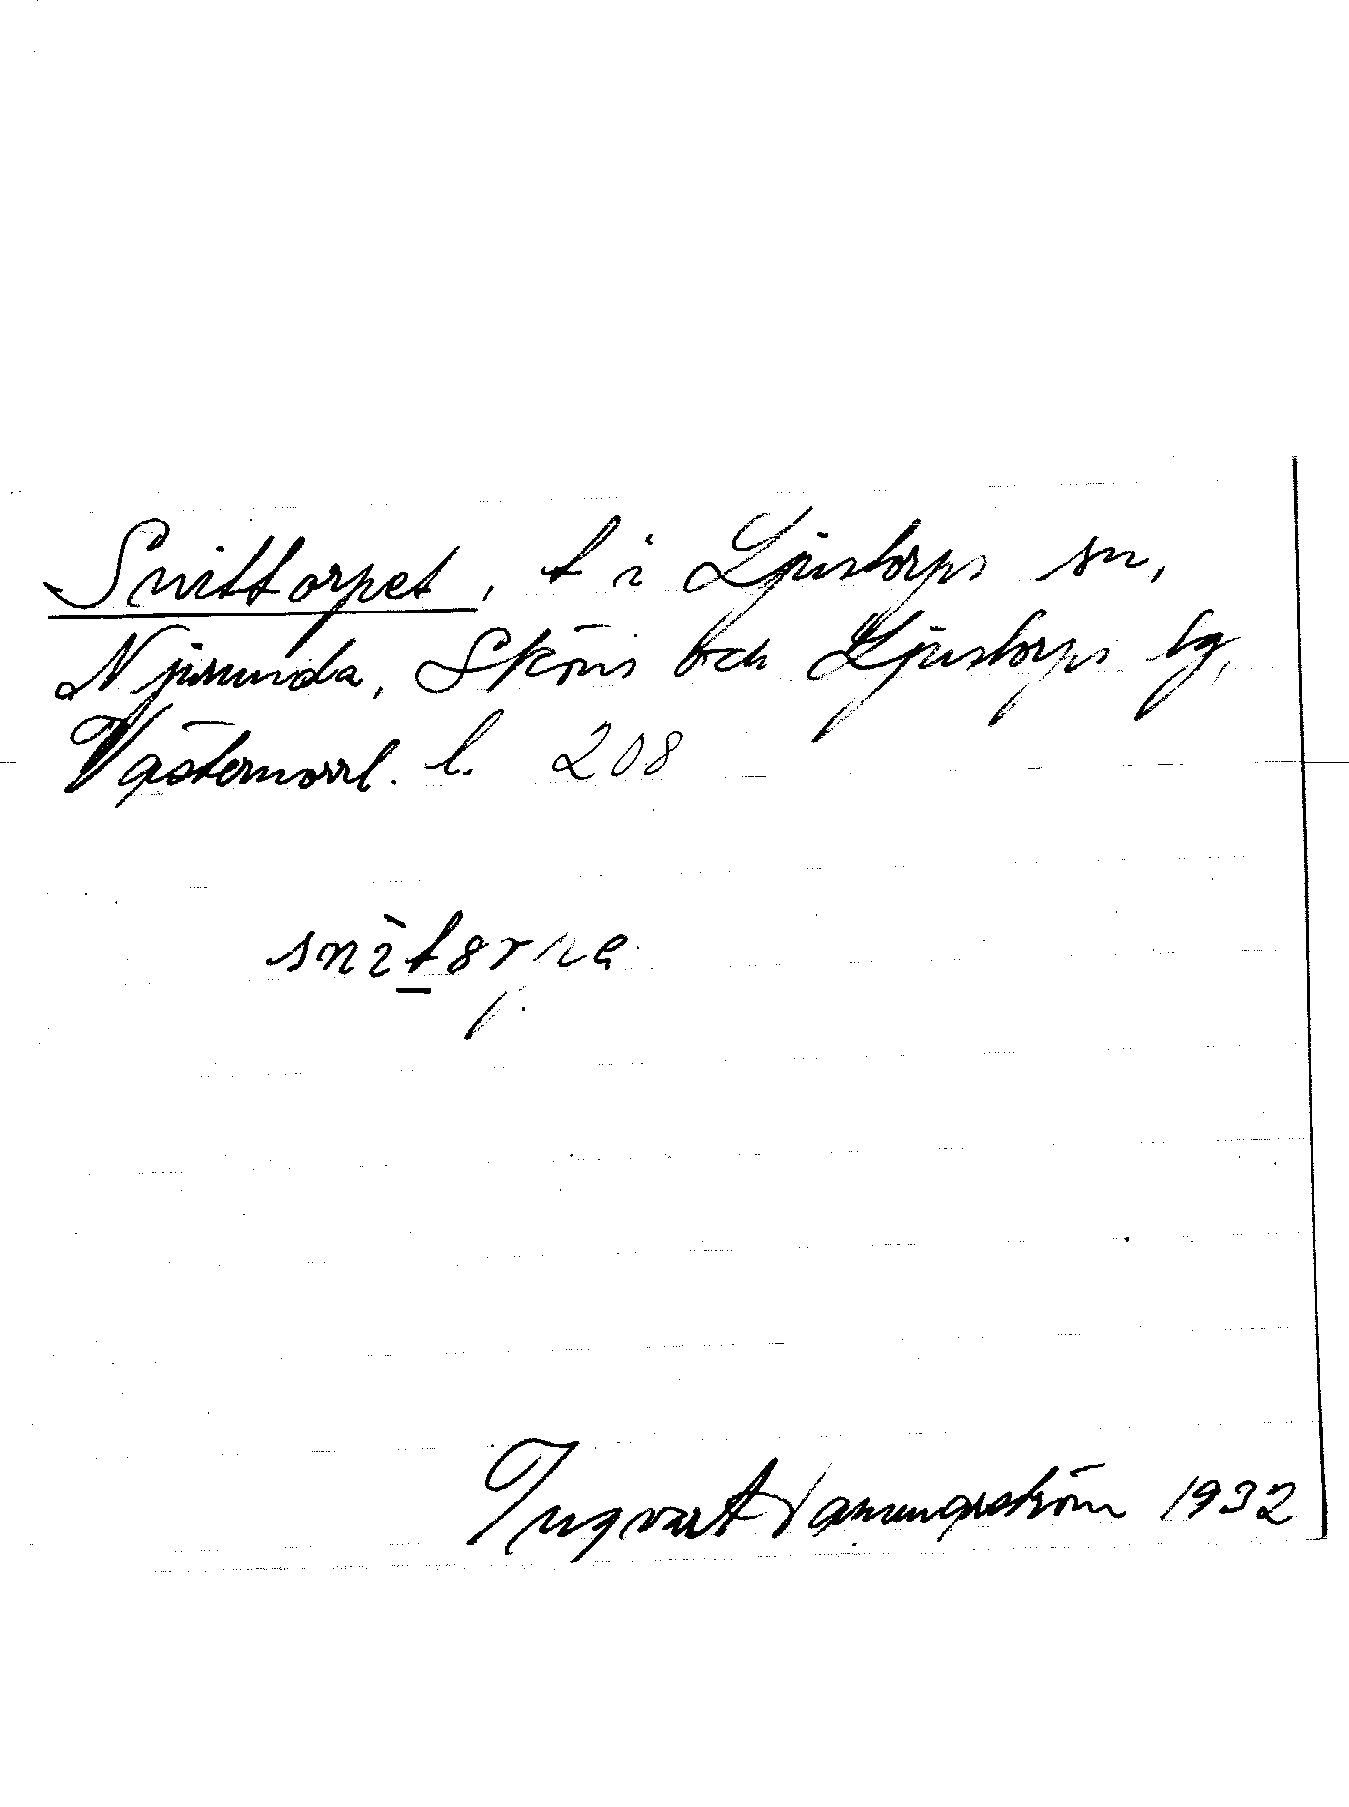 Snittorpet, t i Ljustorps sn,
Njurunda, Sköns och Ljustorps tg,
Västernorrl. l. 208
Ingvart 1932